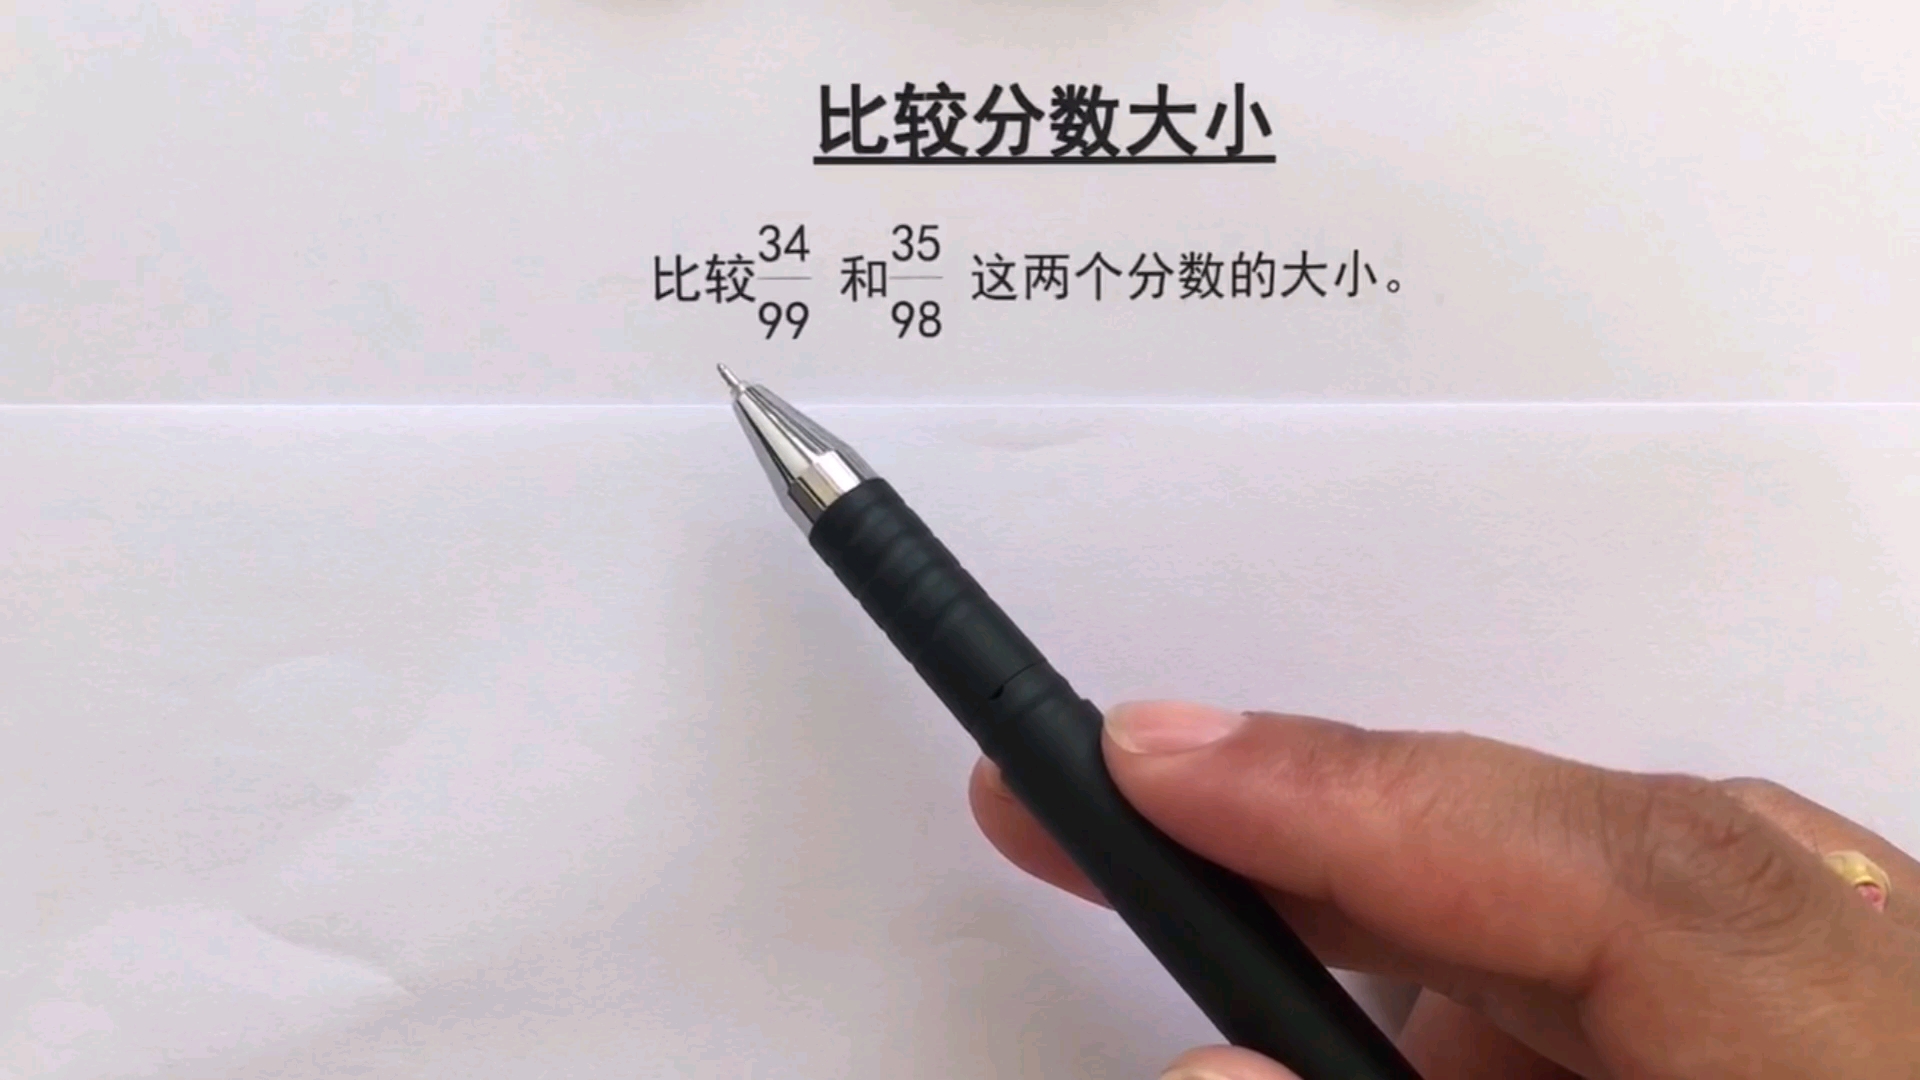 比较分数大小
比较34/99 和35/98 这两个分数的大小。